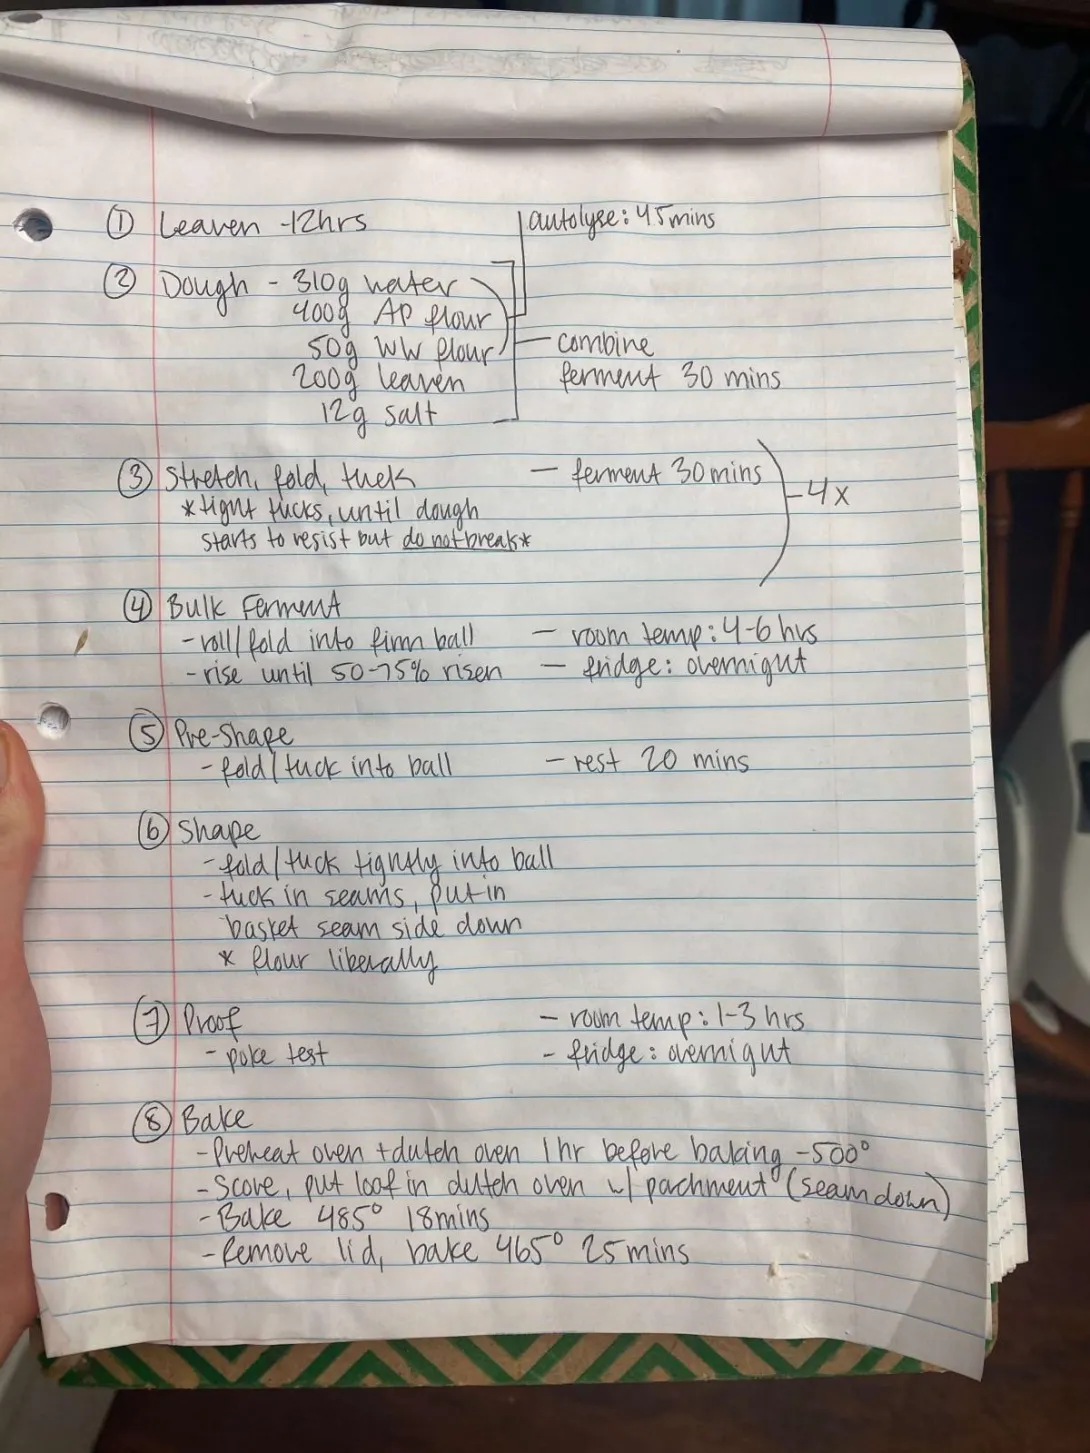 ① Leaven -12hrs
autolyse: 45mins
② Dough - 310g water
400g AP flour
50g WW flour
200g leaven
12g salt
combine
ferment 30 mins
③ Stretch, fold, tuck - ferment 30mins
- 4x
*tight tucks, until dough
starts to resist but do not break*
④ Bulk Ferment
- roll/fold into firm ball - room temp: 4-6 hrs
- rise until 50-75% risen - fridge: overnight
⑤ Pre-Shape
- fold/tuck into ball - rest 20 mins
⑥ Shape
- fold/tuck tightly into ball
- tuck in seams, put in
basket seam side down
* flour liberally
⑦ Proof - room temp: 1-3 hrs
- poke test - fridge: overnight
⑧ Bake
- Preheat oven + dutch oven 1hr before baking - 500°
- Score, put loaf in dutch oven w/ parchment (seam down)
- Bake 485° 18mins
- Remove lid, bake 465° 25mins